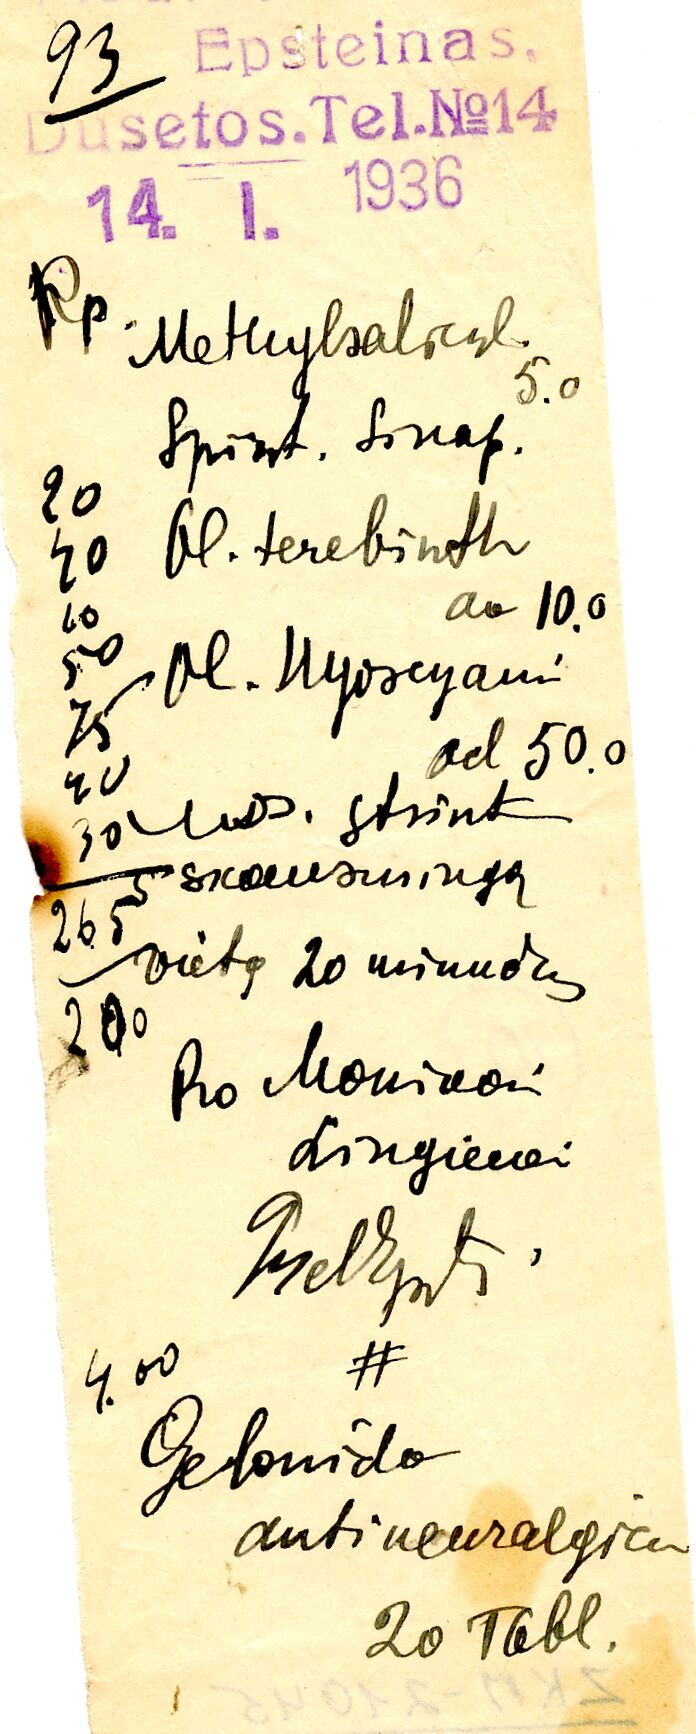 93
Epsteinas.
Dusetos. Tel. №14
14. I. 1936
Rp. Methylsalicyl.
5.0
Spirit. Sinap.
20
40 Ol. terebinth
10
aa 10.0
50
75 Ol. Hyoscyami
40
ad 50.0
30 MDS. įtrint
5 skausmingą
265
vietą 20 minučių
200
Pro Monikai
Lingienei
4.00 #
Gelonida
antineuralgica
20 Tabl.
ZKM-21045